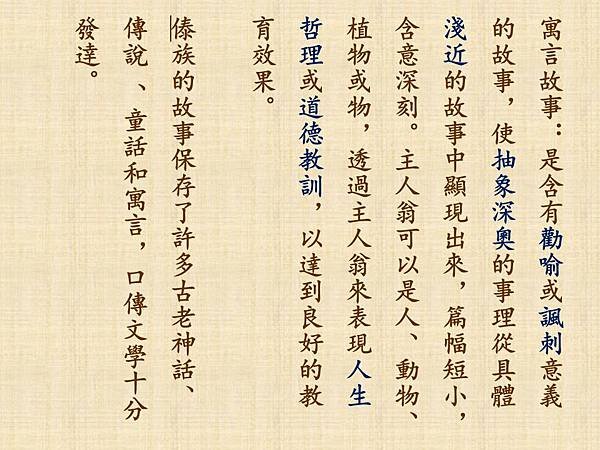 寓言故事：是含有勸喻或諷刺意義
的故事，使抽象深奧的事理從具體
淺近的故事中顯現出來，篇幅短小，
含意深刻。主人翁可以是人、動物、
植物或物，透過主人翁來表現人生
哲理或道德教訓，以達到良好的教
育效果。
傣族的故事保存了許多古老神話、
傳說、童話和寓言，口傳文學十分
發達。